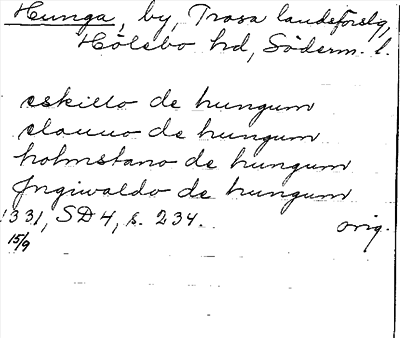 Hunga, by, Trosa landsförslg,
Hölebo hd, Söderm. l.
eskillo de hungum
olauuo de hungum
holmstano de hungum
Jngiwaldo de hungum
1331, SD 4, s. 234. orig.
15/9